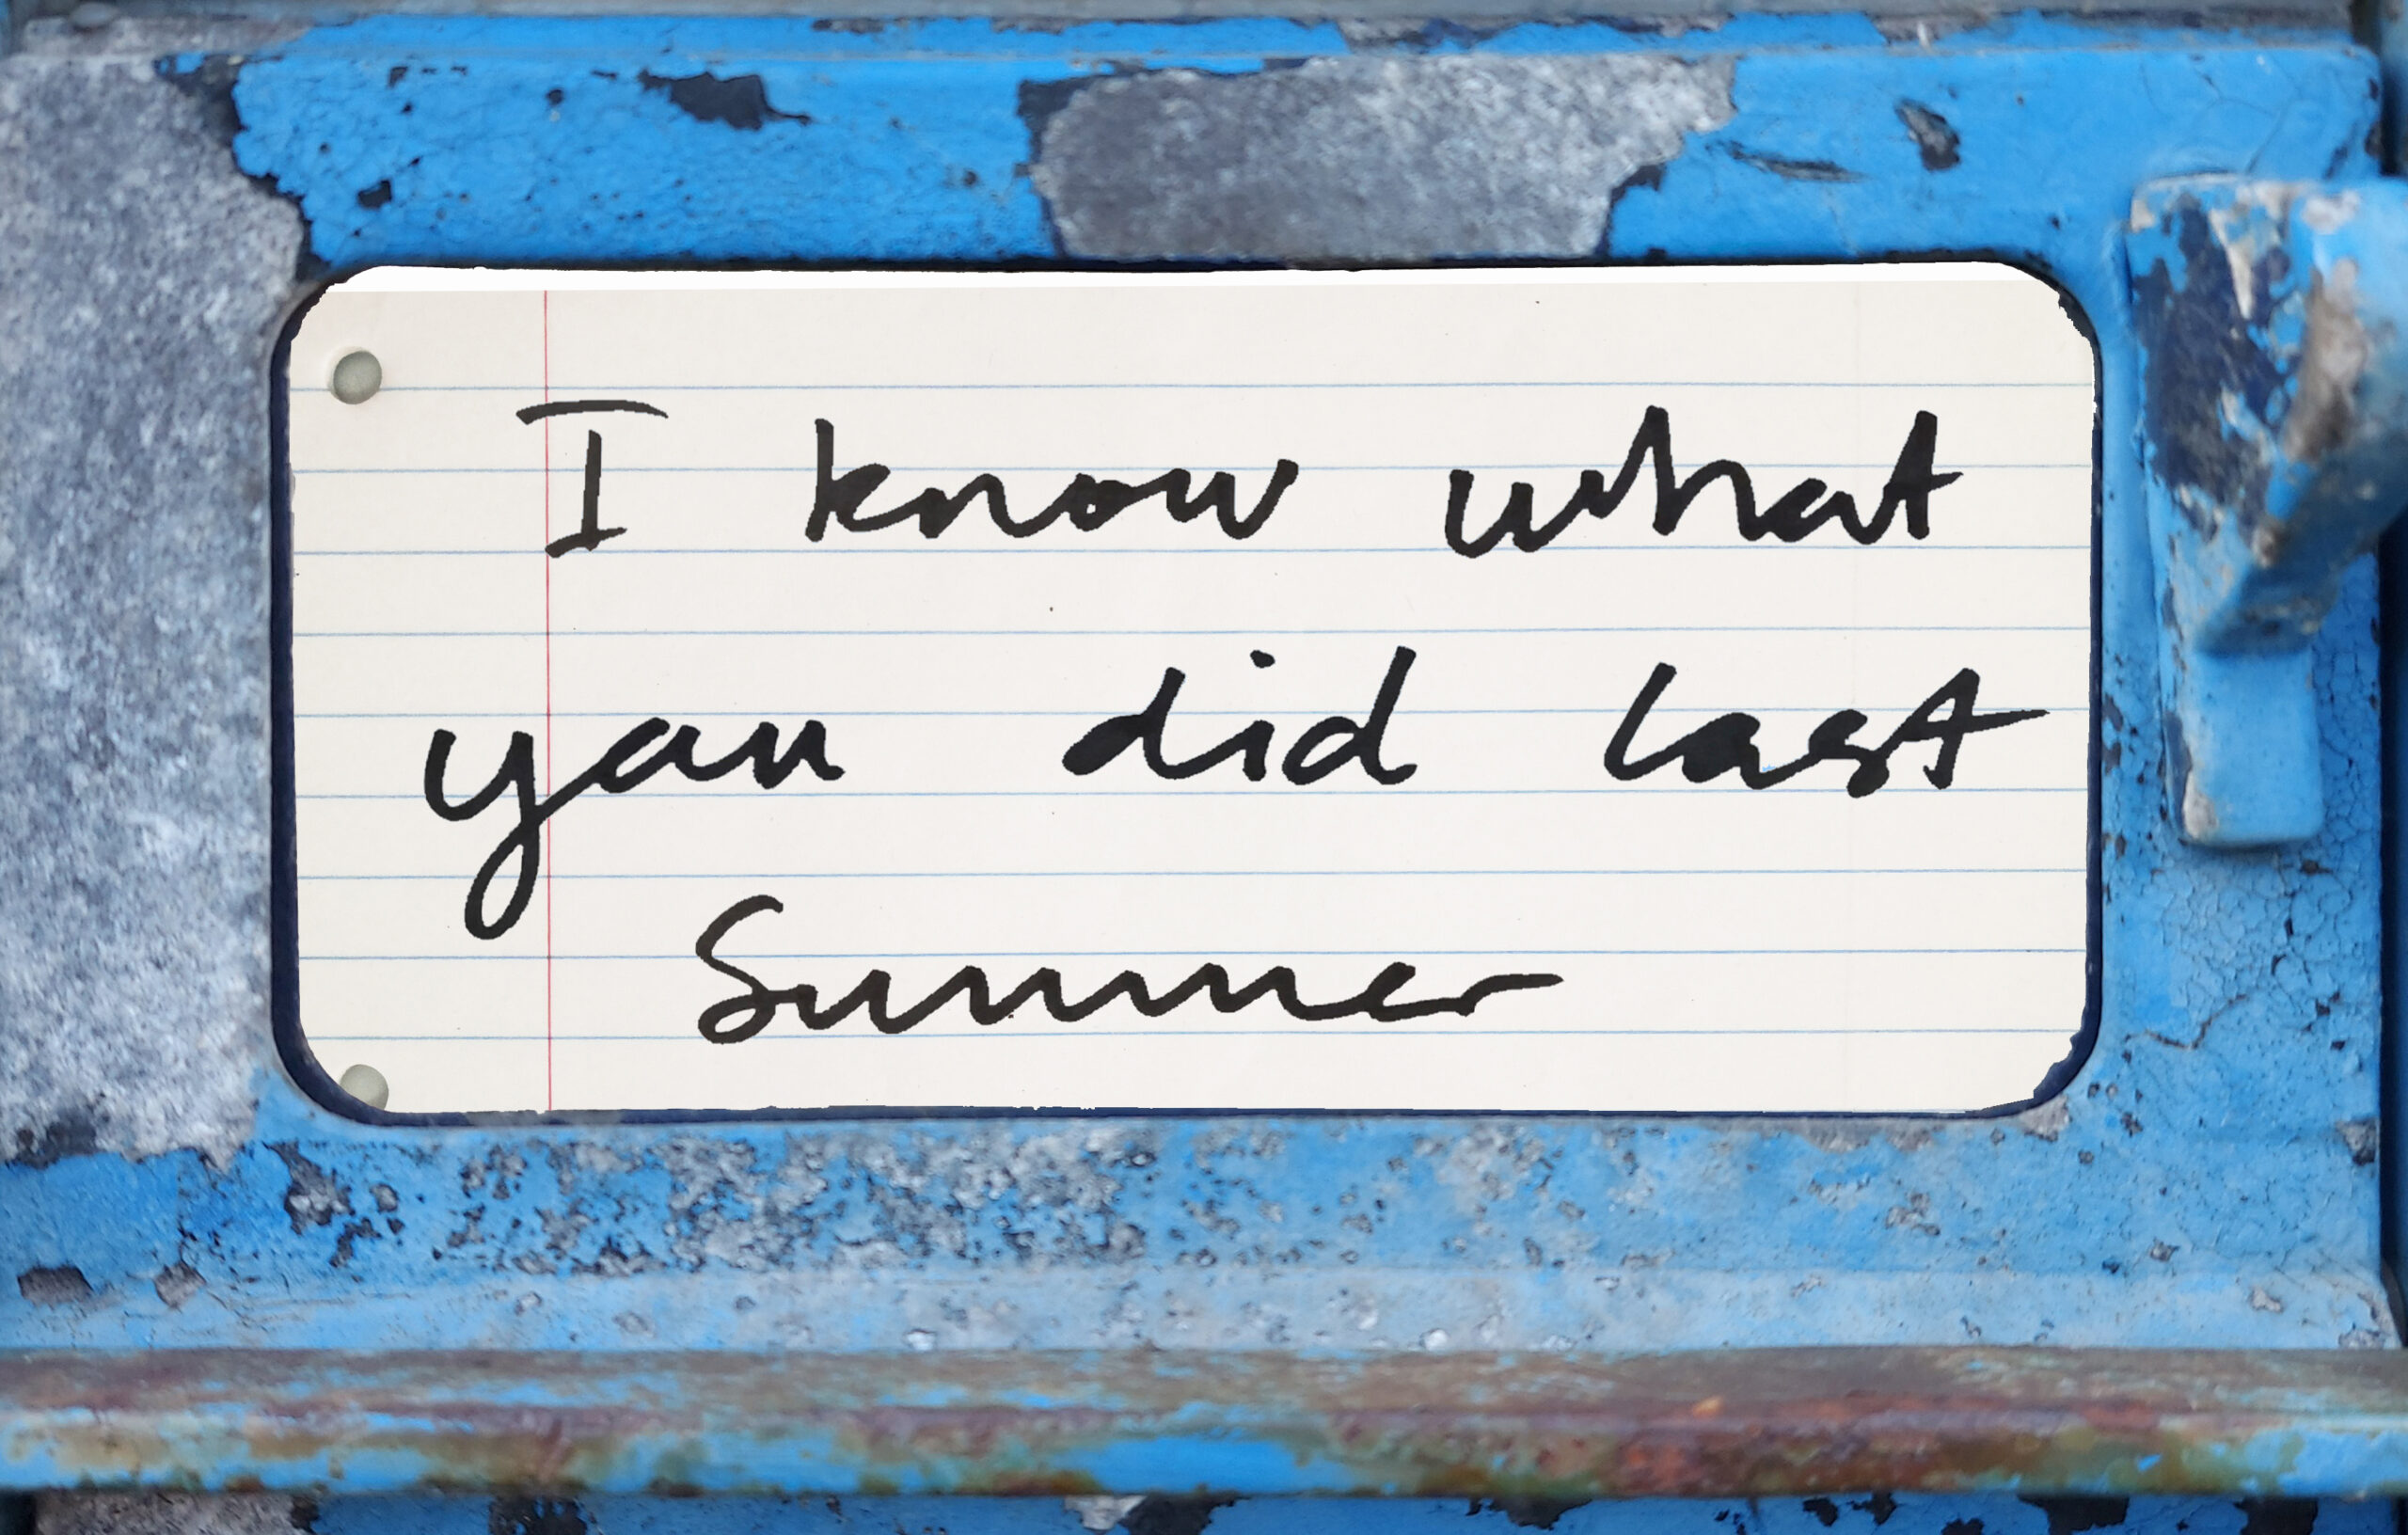 I know what
you did last
Summer